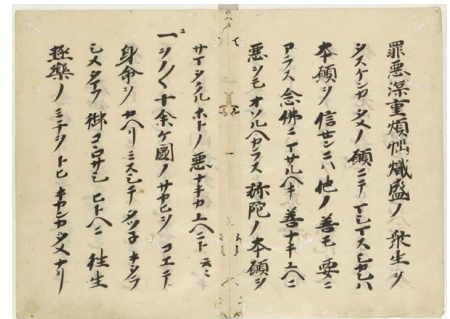 罪悪深重煩悩熾盛ノ衆生ヲ
タスケンカタメノ願ニテマシマスシカレハ
本願ヲ信センニハ他ノ善モ要ニ
アラス念佛ニマサルヘキ善ナキユヘニ
悪ヲモオソルヘカラス弥陀ノ本願ヲ
サマタクルホトノ悪ナキカユヘニト云々
一ヲノ〱十余ケ國ノサカヒヲコエテ
身命ヲカヘリミスシテタツ子キタラ
シメタマフ御コヽロサシヒトヘニ往生
極樂ノミチヲトヒキカンカタメナリ